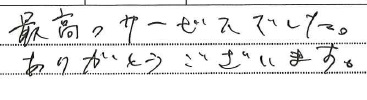 最高のサービスでした。
ありがとうございます。